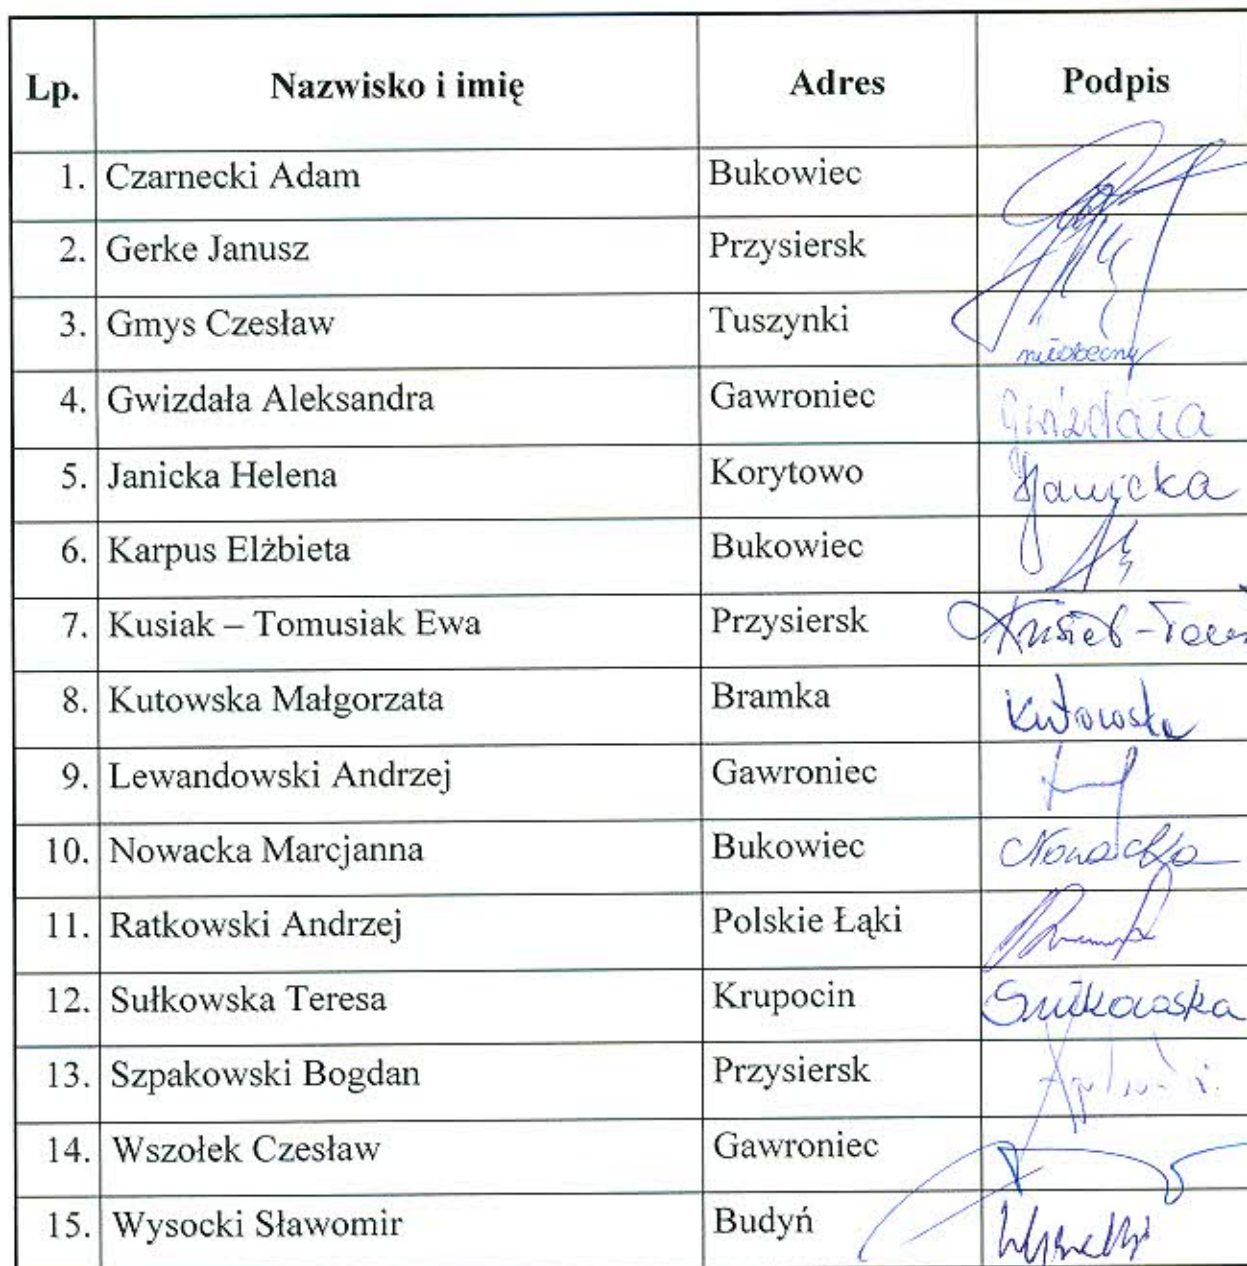 Lp. Nazwisko i imię Adres Podpis
1. Czarnecki Adam Bukowiec
2. Gerke Janusz Przysiersk
3. Gmys Czesław Tuszynki nieobecny
4. Gwizdała Aleksandra Gawroniec Gwizdała
5. Janicka Helena Korytowo Janicka
6. Karpus Elżbieta Bukowiec
7. Kusiak – Tomusiak Ewa Przysiersk
8. Kutowska Małgorzata Bramka Kutowska
9. Lewandowski Andrzej Gawroniec
10. Nowacka Marcjanna Bukowiec Nowacka
11. Ratkowski Andrzej Polskie Łąki
12. Sułkowska Teresa Krupocin Sułkowska
13. Szpakowski Bogdan Przysiersk
14. Wszołek Czesław Gawroniec
15. Wysocki Sławomir Budyń